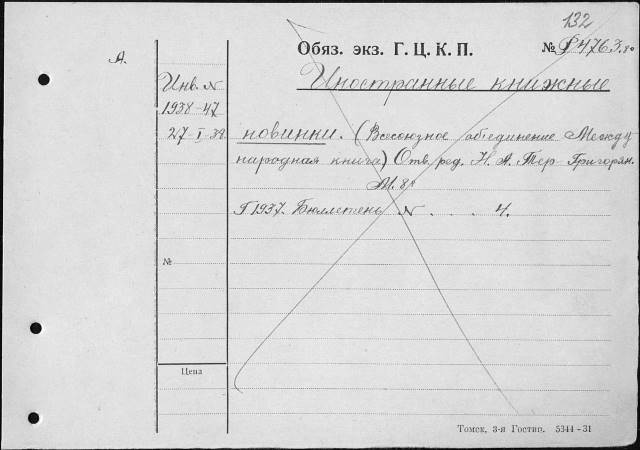 132
А.
Обяз. экз. Г. Ц. К. П. № 4763. 80
Инв. N Иностранные книжные
1938-47
27-I-38 новинки. (Всесоюзное объединение Между
народная книга) Отв. ред. Н. А. Тер-Григорян.
М. 8°
Г 1937. Бюллетень N . . . 4.
№
Цена
Томск, 3-я Гостип. 5344-31